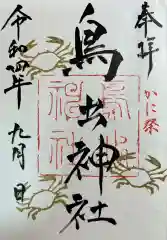 奉拝
かに祭
鳥出神社
令和四年
九月 日